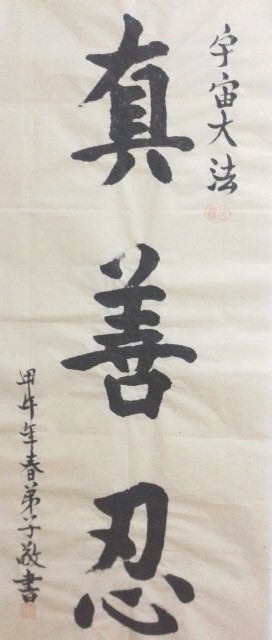 宇宙大法
真善忍
甲午年春弟子敬書